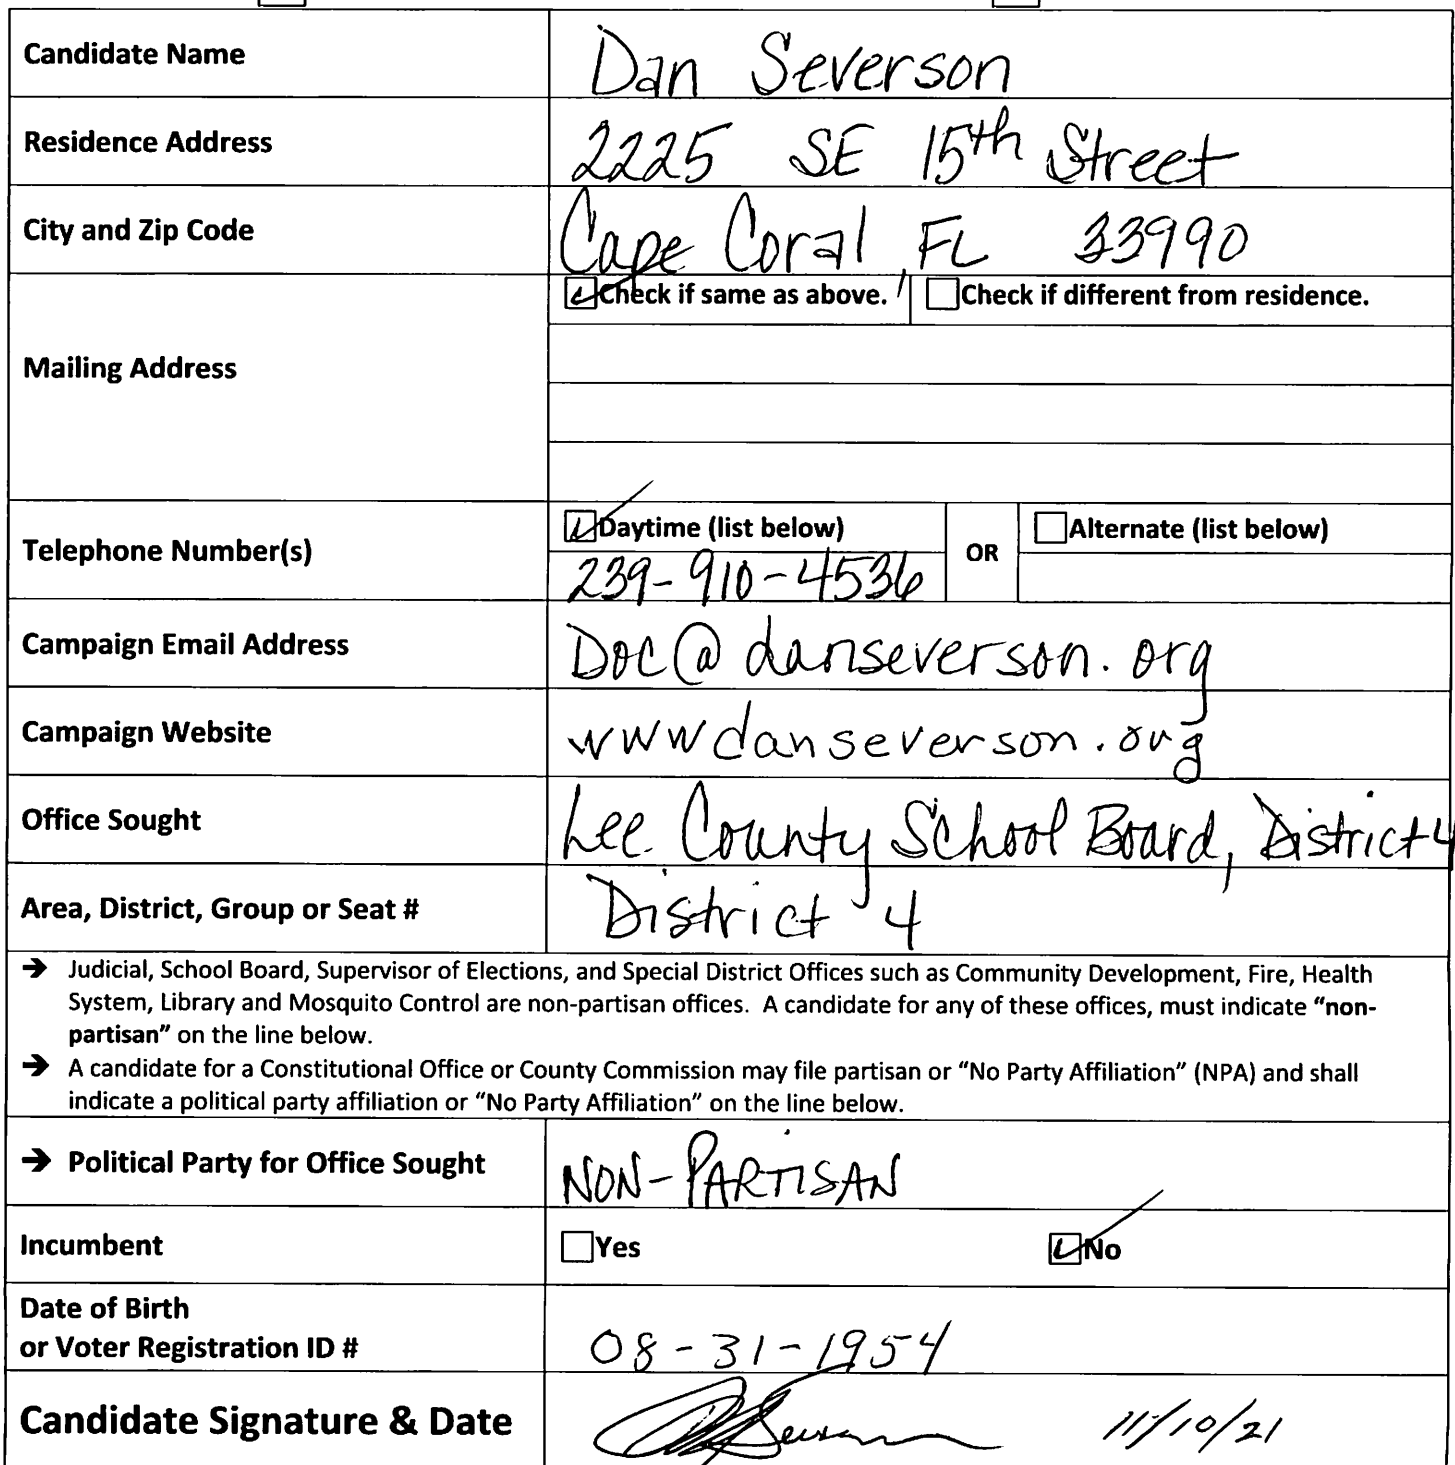 Candidate Name Dan Severson
Residence Address 2225 SE 15th Street
City and Zip Code Cape Coral, FL 33990
Check if same as above. Check if different from residence.
Mailing Address
Daytime (list below) OR Alternate (list below)
Telephone Number(s) 239-910-4536
Campaign Email Address Doc@danseverson.org
Campaign Website wwwdanseverson.org
Office Sought Lee County School Board, District 4
Area, District, Group or Seat # District 4
→ Judicial, School Board, Supervisor of Elections, and Special District Offices such as Community Development, Fire, Health
System, Library and Mosquito Control are non-partisan offices. A candidate for any of these offices, must indicate "non-
partisan" on the line below.
→ A candidate for a Constitutional Office or County Commission may file partisan or "No Party Affiliation" (NPA) and shall
indicate a political party affiliation or "No Party Affiliation" on the line below.
→ Political Party for Office Sought NON-PARTISAN
Incumbent Yes No
Date of Birth
or Voter Registration ID # 08-31-1954
Candidate Signature & Date 11/10/21